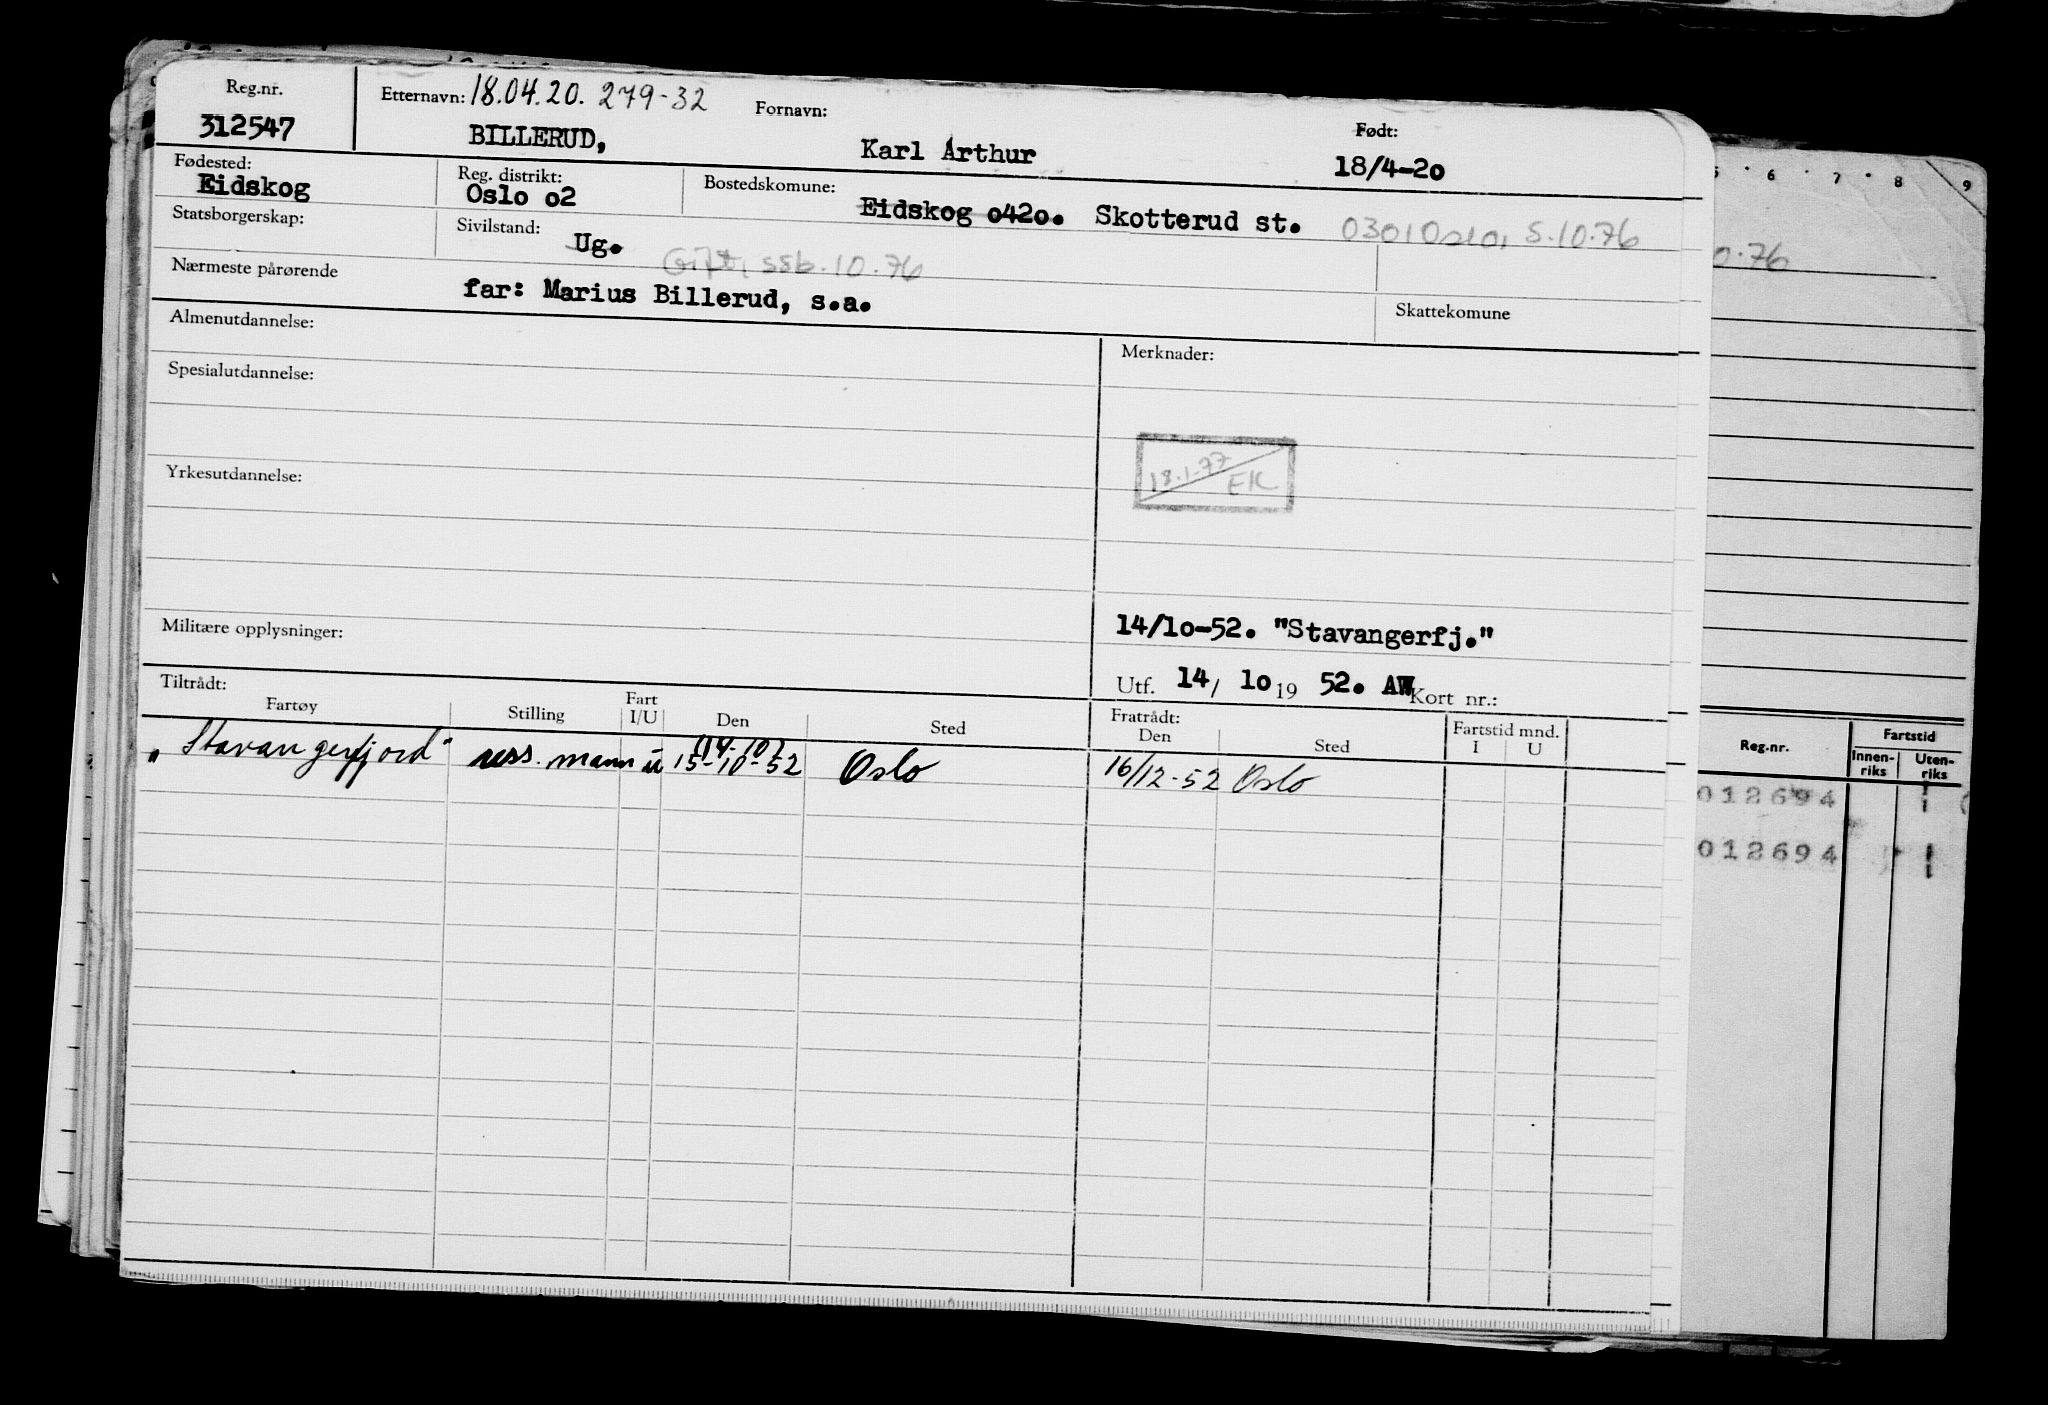 Reg.nr. Etternavn: 18.04.20. 279-32 Fornavn: Født:
312547 BILLERUD, Karl Arthur 18/4-20
Fødested: Reg. distrikt: Bostedskomune:
Eidskog Oslo o2 Eidskog o42o. Skotterud st. 0301 Oslo, S.10.76
Statsborgerskap: Sivilstand: Ug. Gift, ssb.10.76
Nærmeste pårørende far: Marius Billerud, s.a. Skattekomune
Almenutdannelse: Merknader:
Spesialutdannelse:
18.1.77 EK
Yrkesutdannelse:
Militære opplysninger: 14/lo-52. "Stavangerfj."
Utf. 14/ lo 19 52. AW Kort nr.:
Tiltrådt: Fratrådt:
Fartøy Stilling Fart I/U Den Sted Den Sted Fartstid mnd. I U
"Stavangerfjord" u 15-10-52 (14-10) Oslo 16/12-52 Oslo
5 6 7 8 9
0.76
Reg.nr. Fartstid
Innen-riks Uten-riks
012694
012694